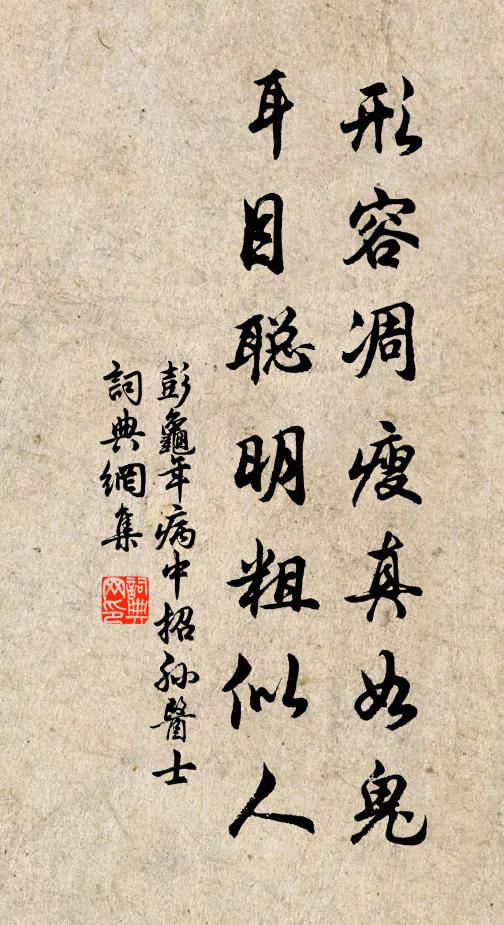 形容凋瘦真如鬼
耳目聪明粗似人
彭龜年病中招孙醫士
詞典網集
詞典网印